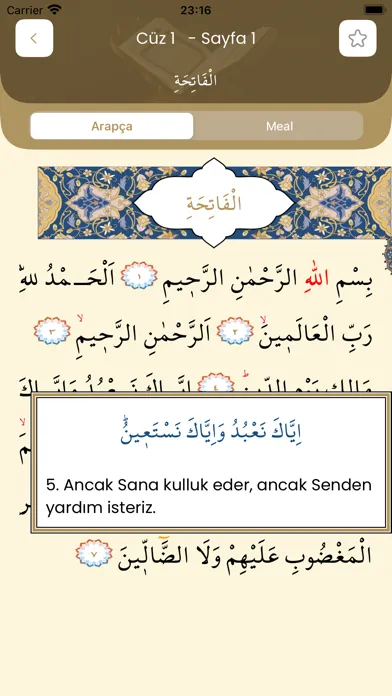 Carrier 23:16
Cüz 1 - Sayfa 1
الْفَاتِحَةِ
Arapça Meal
الْفَاتِحَةِ
بِسْمِ اللهِ الرَّحْمٰنِ الرَّح۪يمِ ﴿١﴾ اَلْحَـــمْدُ لِلّٰهِ
رَبِّ الْعَالَم۪ينَۙ ﴿٢﴾ اَلرَّحْمٰنِ الرَّح۪يمِۙ ﴿٣﴾
مَالِكِ يَوْمِ الدّ۪ينِۜ ﴿٤﴾ اِيَّاكَ نَعْبُدُ وَاِيَّاكَ
اِيَّاكَ نَعْبُدُ وَاِيَّاكَ نَسْتَع۪ينُۜ
5. Ancak Sana kulluk eder, ancak Senden
yardım isteriz.
الْمَغْضُوبِ عَلَيْهِمْ وَلَا الضَّٓالّ۪ينَ ﴿٧﴾